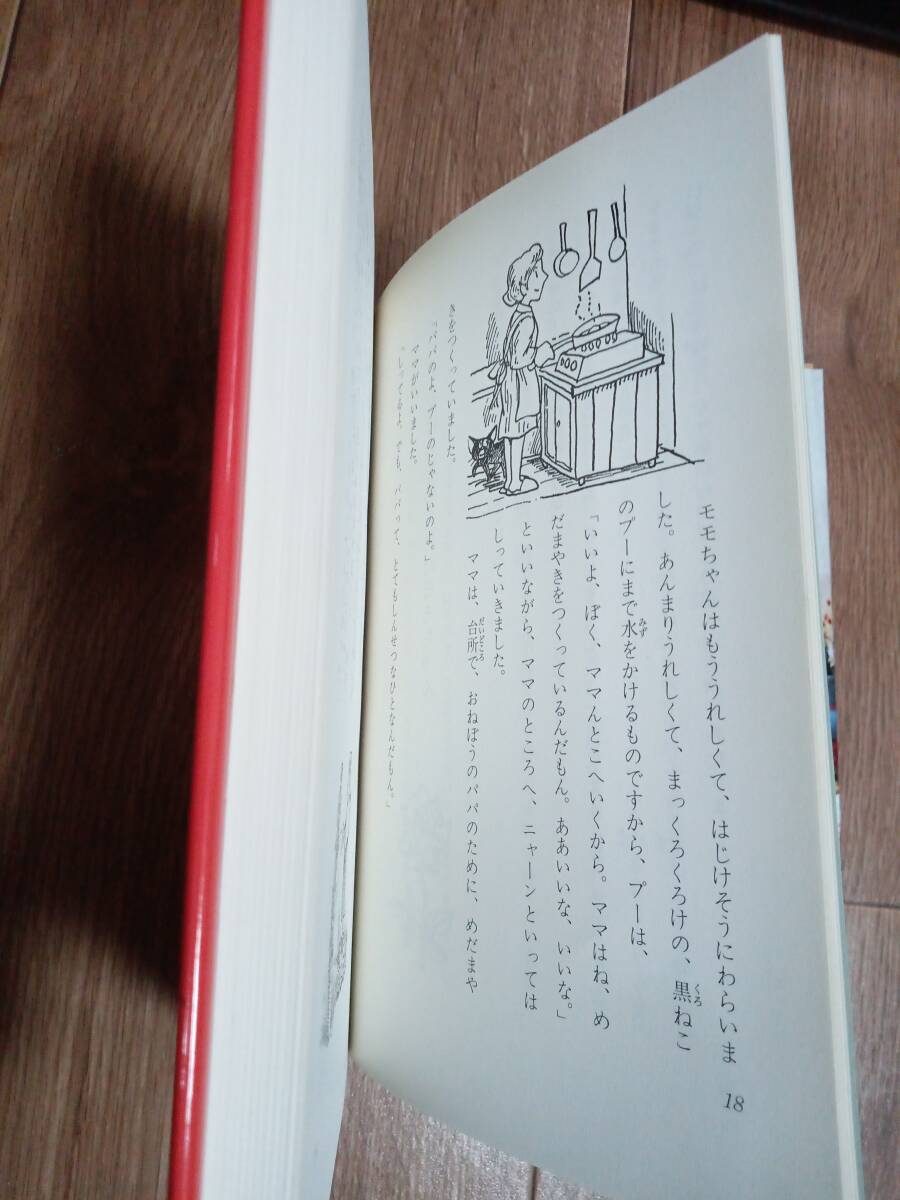 モモちゃんはもううれしくて、はじけそうにわらいま
した。あんまりうれしくて、まっくろくろけの、黒ねこ
のプーにまで水をかけるものですから、プーは、
「いいよ、ぼく、ママんとこへいくから。ママはね、め
だまやきをつくっているんだもん。ああいいな、いいな。」
といいながら、ママのところへ、ニャーンといっては
しっていきました。
ママは、台所で、おねぼうのパパのために、めだまや
きをつくっていました。
「パパのよ、プーのじゃないのよ。」
ママがいいました。
「しってるよ。でも、パパって、とてもしんせつなひとなんだもん。」
18